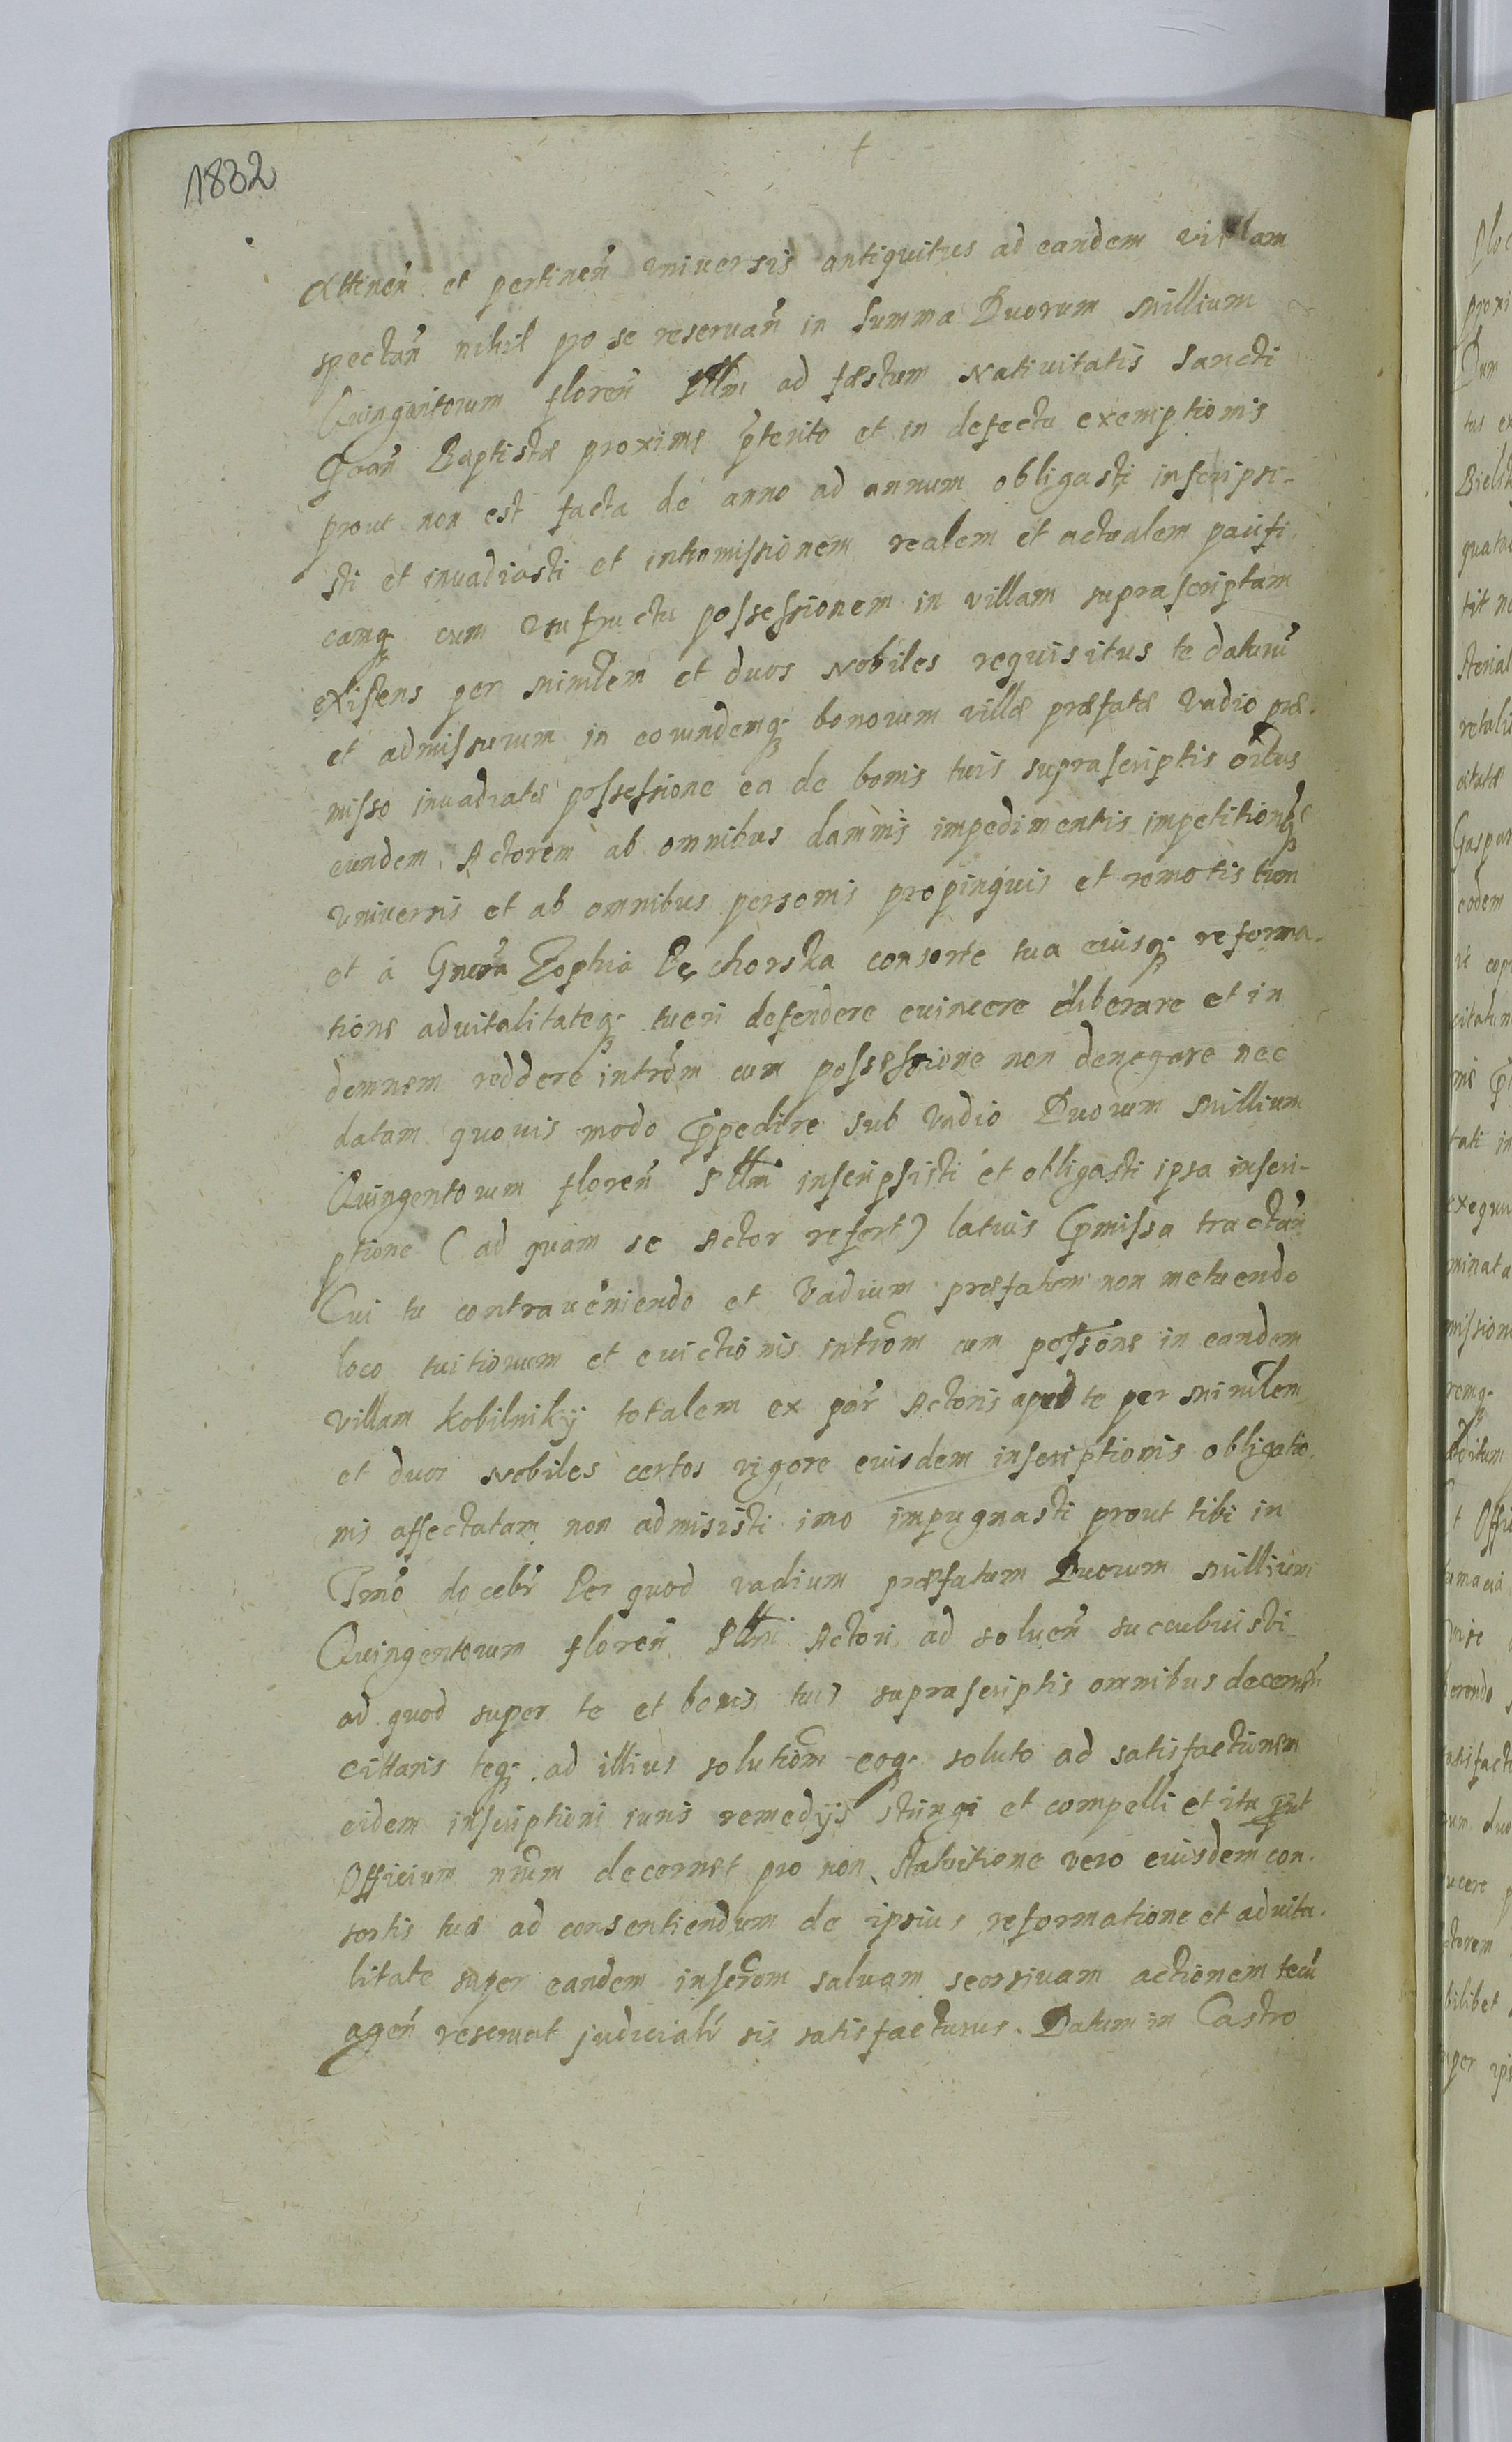 1832
attinen̄ et pertinen̄ vniuersis antiquitus ad eandem villam
spectan̄ nihil pro se reseruan̄ in Summa Duorum Millium
Quingentorum floren̄ Pllm ad fæstum Natiuitatis Sancti
Joan̄ Baptistæ proxime p̄terito et in defectu exemptionis
prout non est facta de anno ad annum obligasti inscripsi-
sti et inuadiasti et intromissionem realem et actualem pacifi
camq; cum vsufructu possessionem in villam suprascriptam
existens per Minrlem et duos Nobiles requisitus te daturū
et admissurum in eorundemq; bonorum villæ præfatæ Vadio præ-
misso inuadiatæ possessione ea de bonis tuis suprascriptis oībus
eundem Actorem ab omnibus damnis impedimentis impetitionibq;
vniuersis et ab omnibus personis propinquis et remotis tum
et à Gnosa Zophia Pęchorska consorte tua eiusq; reforma-
tione aduitalitateq; tueri defendere euincere eliberare et in
demnem reddere introm̄ cum possessione non denegare nec
datam quouis modo p̄pedire sub Vadio Duorum Millium
Quingentorum floren̄ Pllm inscripsisti et obligasti ipsa inscri-
ptione (ad quam se Actor refert) latius p̄missa tractan̄
Cui tu contraueniendo et Vadium præfatum non metuendo
loco tuitiorum et euictionis introm̄ cum possōne in eandem
villam Kobilniky totalem ex par̄ Actoris apud te per Minrlem
et duos Nobiles certos vigore eiusdem inscriptionis obligatio-
nis affectatam non admisisti imo impugnasti prout tibi in
Tm̄o docebr̄ Per quod vadium præfatum Duorum Millium
Quingentorum floren̄ Pllm Actori ad soluen̄ succubuisti
ad quod super te et bonis tuis suprascriptis omnibus decernen̄
cittaris teq; ad illius solutiōm eoq; soluto ad satisfactionem
eidem inscriptioni iuris remedijs stringi et compelli et ita prut
Officium nrūm decernet pro non stabilitione vero eiusdem con-
sortis tuæ ad consentiendum de ipsius reformatione et aduita-
litate super eandem inscrōm saluam seorsiuam actionem tecū
agen̄ reseruat judicialr̄ sis satisfacturus. Datum in Castro